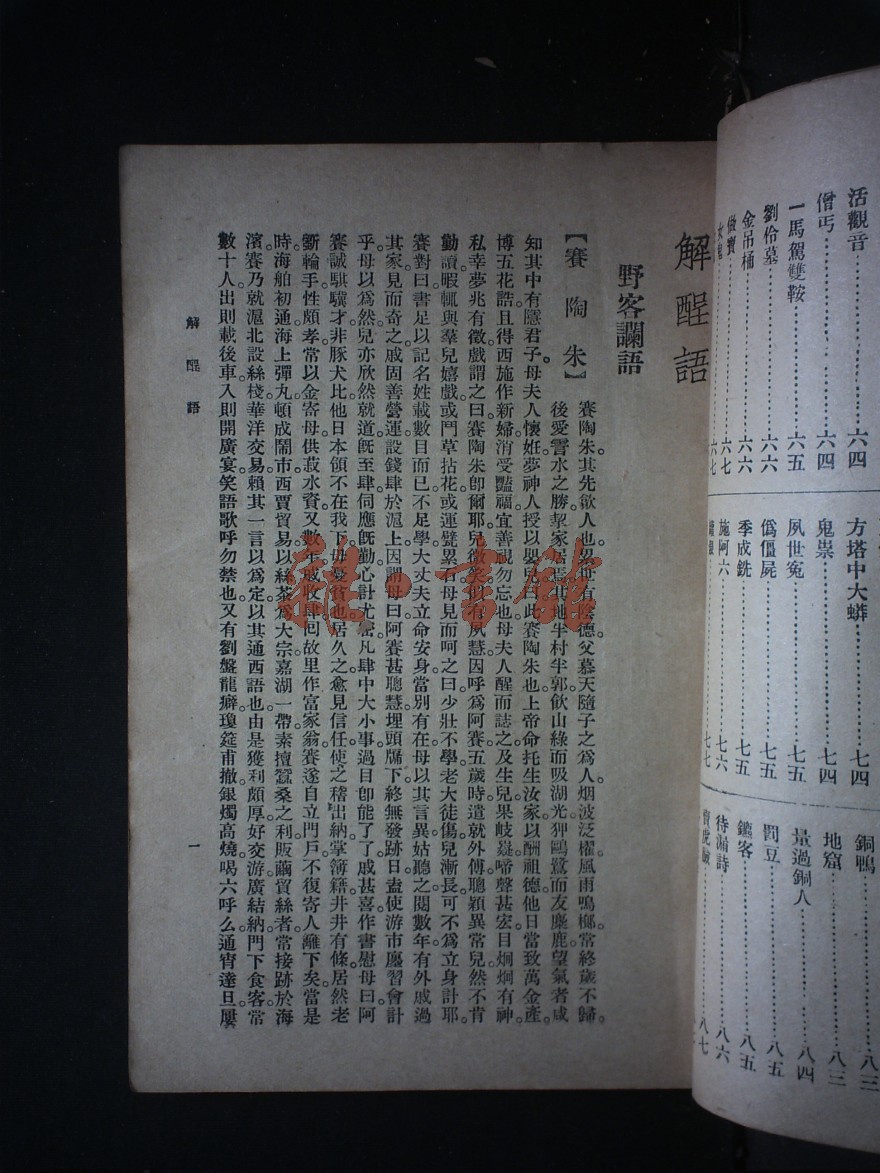 活觀音……………六四
僧丐……………六四
一馬駕雙鞍……………六五
劉伶墓……………六六
金吊桶……………六六
做寶……………六七
六七
方塔中大蟒……………七四
鬼祟……………七四
夙世冤……………七五
僞僵屍……………七五
季成銑……………七五
施阿六……………七六
七七
銅鴨……………八三
地窟……………八三
量過銅人……………八四
罰豆……………八五
鑣客……………八五
待漏詩……………八六
八七
解酲語
野客讕語
【賽陶朱】
賽陶朱。其先歙人也。累世有陰德。父慕天隨子之爲人。烟波泛櫂。風雨鳴榔。常終歲不歸。
後愛霅水之勝。挈家居焉。其地半村半郭。飮山綠而吸湖光。狎鷗鷺而友麋鹿。望氣者咸
知其中有隱君子。母夫人懷姙。夢神人授以嬰兒曰。此賽陶朱也。上帝命托生汝家。以酬祖德。他日當致萬金產。
博五花誥。且得西施作新婦。消受豔福。宜善視勿忘也。母夫人醒而誌之。及生兒。果岐嶷。啼聲甚宏。目烱烱有神。
私幸夢兆有徵。戲謂之曰。賽陶朱卽爾耶。兒微笑。似有夙慧。因呼爲阿賽。五歲時遣就外傅。聰穎異常兒。然不肯
勤讀。暇輒與羣兒嬉戲。或鬥草拈花。或運甓累石。母見而呵之曰。少壯不學。老大徒傷。兒漸長。可不爲立身計耶。
賽對曰。書足以記名姓載數目而已。不足學。大丈夫立命安身。當別有在。母以其言異。姑聽之。閱數年。有外戚過
其家。見而奇之。戚固善營運。設錢肆於滬上。因謂母曰。阿賽甚聰慧。埋頭牖下。終無發跡日。盍使游市廛。習會計
乎。母以爲然。兒亦欣然就道。旣至肆。伺應旣勤。心計尤密。凡肆中大小事。過目卽能了了。戚甚喜。作書慰母曰。阿
賽誠騏驥才。非豚犬比。他日本領不在我下。毋憂貧也。居久之。愈見信任。使之稽出納。掌簿籍。井井有條。居然老
斵輪手。性頗孝。常以金寄母。供菽水資。又數年。戚收肆回故里作富家翁。賽遂自立門戶。不復寄人籬下矣。當是
時。海舶初通。海上彈丸。頓成鬧市。西賈貿易以絲茶爲大宗。嘉湖一帶。素擅蠶桑之利。販繭貿絲者。常接跡於海
濱。賽乃就滬北設絲棧。華洋交易。賴其一言以爲定。以其通西語也。由是獲利頗厚。好交游。廣結納。門下食客常
數十人。出則載後車。入則開廣宴。笑語歌呼勿禁也。又有劉盤龍癖。瓊筵甫撤。銀燭高燒。喝六呼么。通宵達旦。屢
解酲語
一